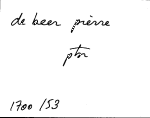 de beer pierre
ptr
1700/53